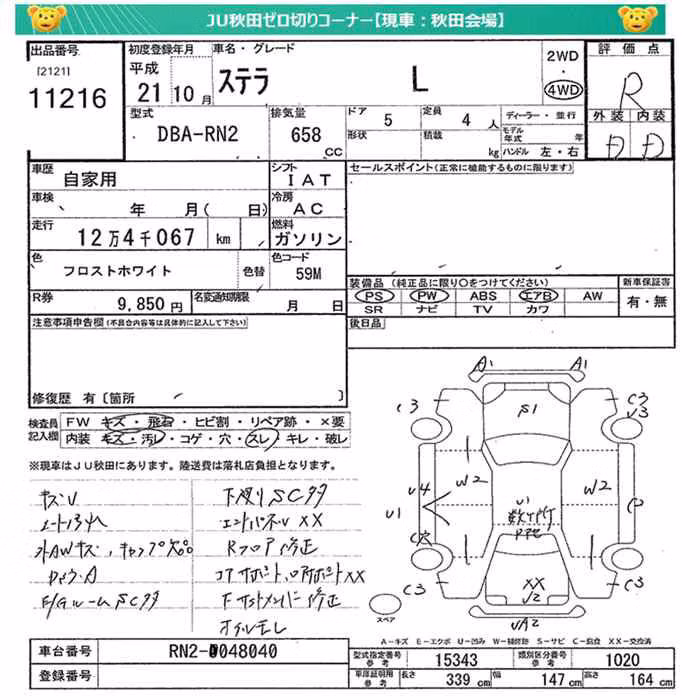 JU秋田ゼロ切りコーナー【現車：秋田会場】
出品番号 初度登録年月 車名・グレード 2WD 評価点
[2121] 平成 ステラ L ・ R
11216 21年10月 4WD 外装 内装
型式 排気量 ドア 5 定員 4人 ディーラー・並行 D D
DBA-RN2 658 CC 形状 積載 kg モデル年式 年
ハンドル 左・右
車歴 自家用 シフト IAT セールスポイント(正常に機能するものに限ります)
車検 年 月( 日) 冷房 AC
走行 12万4千067 km 燃料 ガソリン
色 フロストホワイト 色替 色コード 59M
装備品 (純正品に限り○をつけてください) 新車保証書
R券 9,850円 名変通知期限 月 日 PS PW ABS エアB AW 有・無
SR ナビ TV カワ
注意事項申告欄(不具合内容等は具体的に記入して下さい) 後日品
修復歴 有〔箇所 〕
検査員記入欄 FW キズ・飛石・ヒビ割・リペア跡・×要
内装 キズ・汚レ・コゲ・穴・スレ・キレ・破レ
※現車はJU秋田にあります。陸送費は落札店負担となります。
キズU 下廻りSCサタ
シート汚れ エンドパネルXX
外AWキズ,キャップ欠品 Rフロア修正
コアサポート,ロアサポートXX
E/GルームSCサタ F サイドメンバー修正
オイルモレ
A1 A1
C3 S1 C3
V3
U4 W2 W2 C
U1 U1 数ヶ所
C穴
C3 XX C3
V2
スペア VA2
A－キズ E－エクボ U－凹み W－補修跡 S－サビ C－腐食 XX－交換済
車台番号 RN2-0048040 型式指定番号 参考 15343 類別区分番号 参考 1020
登録番号 車庫証明用 参考 長さ 339 cm 幅 147 cm 高さ 164 cm